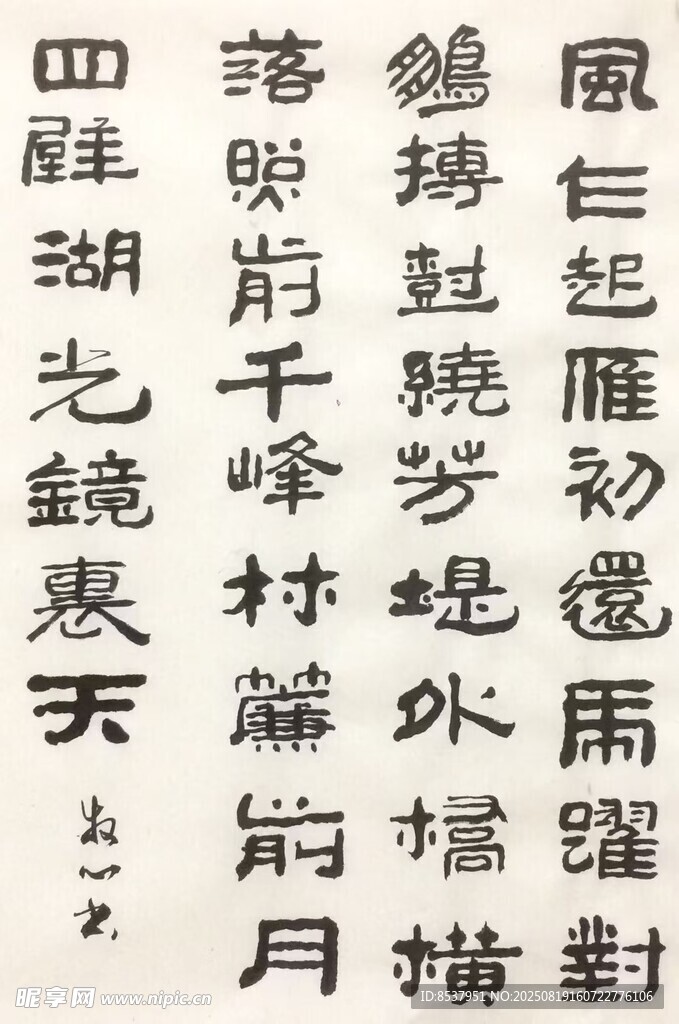 風乍起雁初還馬躍對
鵬摶對繞芳堤外橋橫
落照前千峰簾前月
四壁湖光鏡裏天
牧心書
昵享网 www.nipic.cn
ID:8537951 NO:20250819160722776106